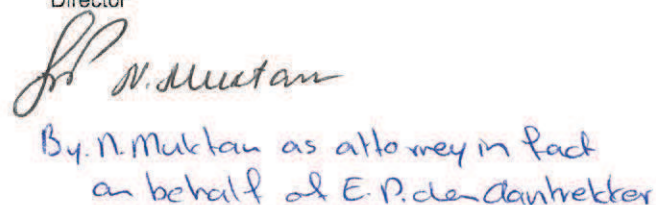 Director
N. Muktan
By. N. Muktan as attorney in fact
on behalf of E. P. den Dantrekker